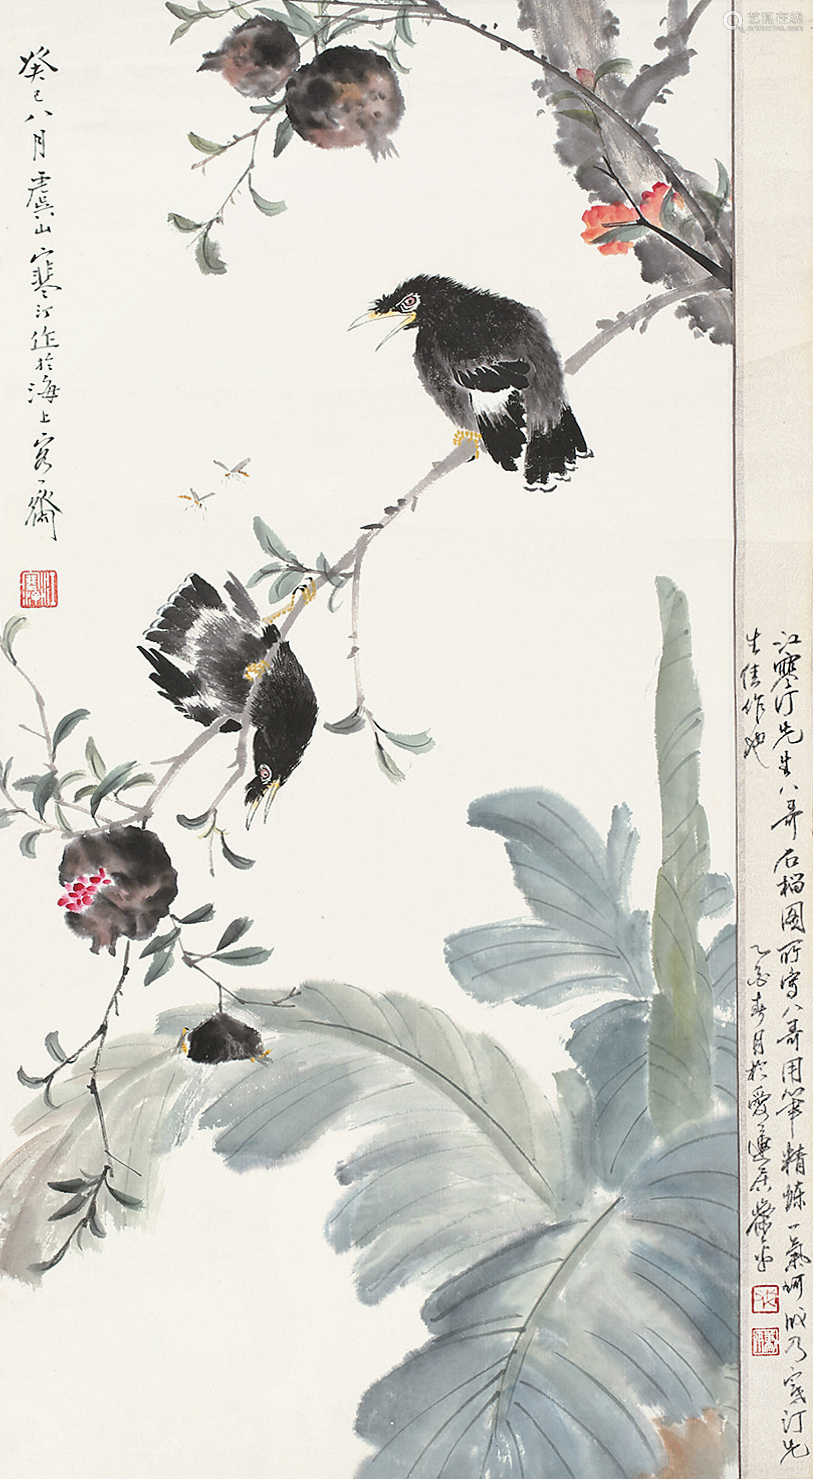 癸巳八月虞山寒汀作於海上容齋
江寒汀
江寒汀先生八哥石榴圖所寫八哥用筆精練一氣呵成乃寒汀先
生佳作也
乙酉春月於愛蓮居
艺狐在线